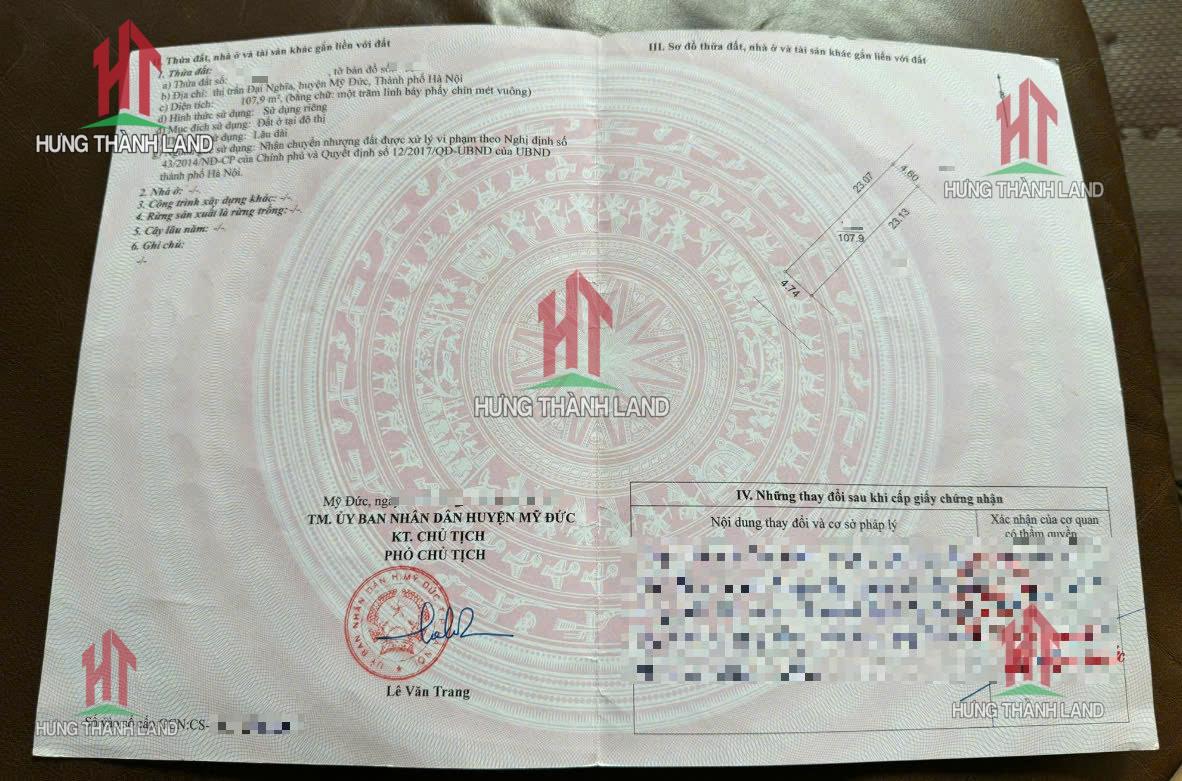 . Thửa đất, nhà ở và tài sản khác gắn liền với đất
1. Thửa đất:
a) Thửa đất số: , tờ bản đồ số
b) Địa chỉ: thị trấn Đại Nghĩa, huyện Mỹ Đức, Thành phố Hà Nội
c) Diện tích: 107,9 m², (bằng chữ: một trăm linh bảy phẩy chín mét vuông)
d) Hình thức sử dụng: Sử dụng riêng
Mục đích sử dụng: Đất ở tại đô thị
sử dụng: Lâu dài
sử dụng: Nhận chuyển nhượng đất được xử lý vi phạm theo Nghị định số
43/2014/NĐ-CP của Chính phủ và Quyết định số 12/2017/QĐ-UBND của UBND
thành phố Hà Nội.
2. Nhà ở: -/-
3. Công trình xây dựng khác: -/-
4. Rừng sản xuất là rừng trồng: -/-
5. Cây lâu năm: -/-
6. Ghi chú:
-/-
Mỹ Đức,
TM. ỦY BAN NHÂN DÂN HUYỆN MỸ ĐỨC
KT. CHỦ TỊCH
PHÓ CHỦ TỊCH
Lê Văn Trang
III. Sơ đồ thửa đất, nhà ở và tài sản khác gắn liền với đất
23.07
4.60
23.13
107.9
4.74
IV. Những thay đổi sau khi cấp giấy chứng nhận
Nội dung thay đổi và cơ sở pháp lý
Xác nhận của cơ quan
có thẩm quyền
HT
HƯNG THÀNH LAND
HT
HƯNG THÀNH LAND
HT
HƯNG THÀNH LAND
HT
HƯNG THÀNH LAND
HT
HƯNG THÀNH LAND